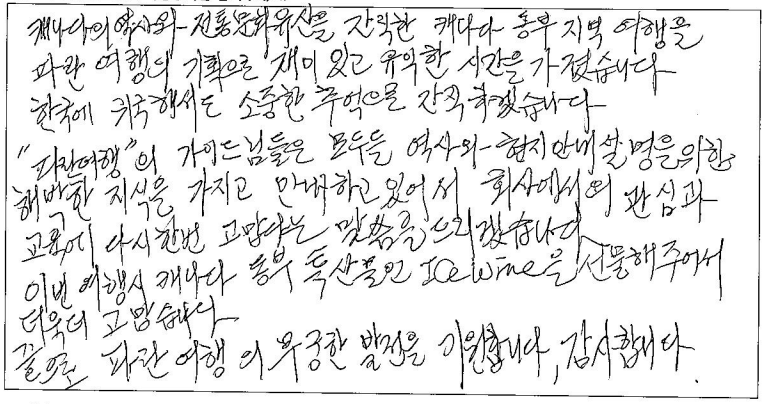 캐나다의 역사와 전통문화유산을 간직한 캐나다 동부 지역 여행을
파란 여행의 기획으로 재미 있고 유익한 시간을 가졌습니다
한국에 귀국해서도 소중한 추억으로 간직하겠습니다
"파란여행"의 가이드님들은 모두들 역사와 현지안내설명을위한
해박한 지식을 가지고 안내하고있어서 회사에서의 관심과
교육에 다시한번 고맙다는 말씀을드리겠습니다
이번 여행시 캐나다 동부 특산물인 ICewine을 선물해주어서
더욱더 고맙습니다
끝으로 파란여행의 무궁한 발전을 기원합니다, 감사합니다.